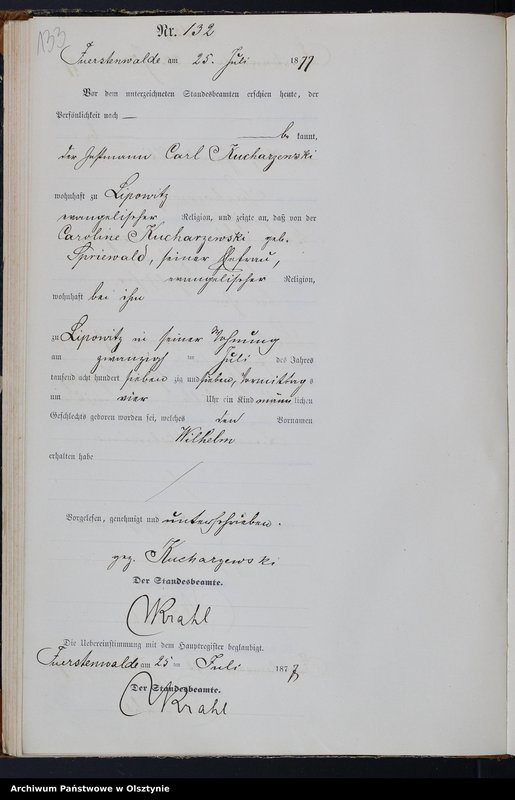 133
Nr. 132
Fuerstenwalde am 25. Juli 1877
Vor dem unterzeichneten Standesbeamten erschien heute, der
Persönlichkeit nach
be kannt,
der Carl Kucharzewski
wohnhaft zu Lipowitz
evangelischer Religion, und zeigte an, daß von der
Caroline Kucharzewski geb.
Spriewald, seiner Ehefrau,
evangelischer Religion,
wohnhaft bei ihm
zu Lipowitz in seiner Wohnung
am zwanzigsten Juli des Jahres
tausend acht hundert sieben zig und sieben, Vormittags
um vier Uhr ein Kind männlichen
Geschlechts geboren worden sei, welches den Vornamen
Wilhelm
erhalten habe
Vorgelesen, genehmigt und unterschrieben.
gez. Kucharzewski
Der Standesbeamte.
Krahl
Die Uebereinstimmung mit dem Hauptregister beglaubigt.
Fuerstenwalde am 25 ten Juli 1877
Der Standesbeamte.
Krahl
Archiwum Państwowe w Olsztynie